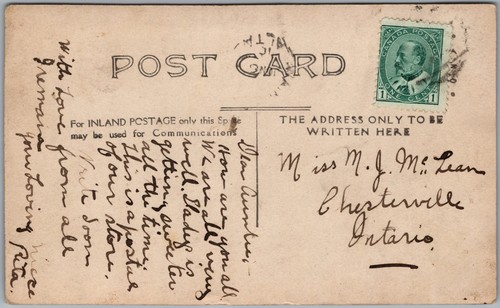 POST CARD
CANADA POSTAGE
1 1
For INLAND POSTAGE only this Space
may be used for Communications
THE ADDRESS ONLY TO BE
WRITTEN HERE
Miss M. J. McLean
Chesterville
Ontario
Dear Auntie,-
How are you all
We are all very
well. Gladys is
getting sweeter
all the time.
This is a postal
of our store.
Write Soon
With Love from all
I remain
your Loving Niece
Rita.